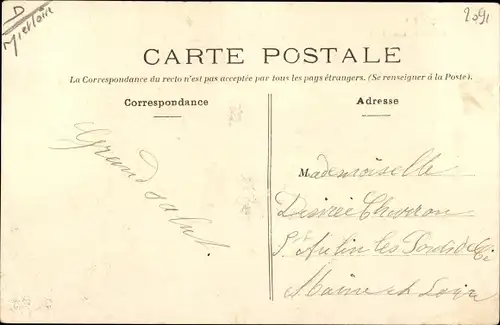 D
2091
CARTE POSTALE
La Correspondance du recto n'est pas acceptée par tous les pays étrangers. (Se renseigner à la Poste).
Correspondance
Grand salut.
Adresse
Mademoiselle
Désirée
St Aubin les Ponts de Cé
Maine et Loire